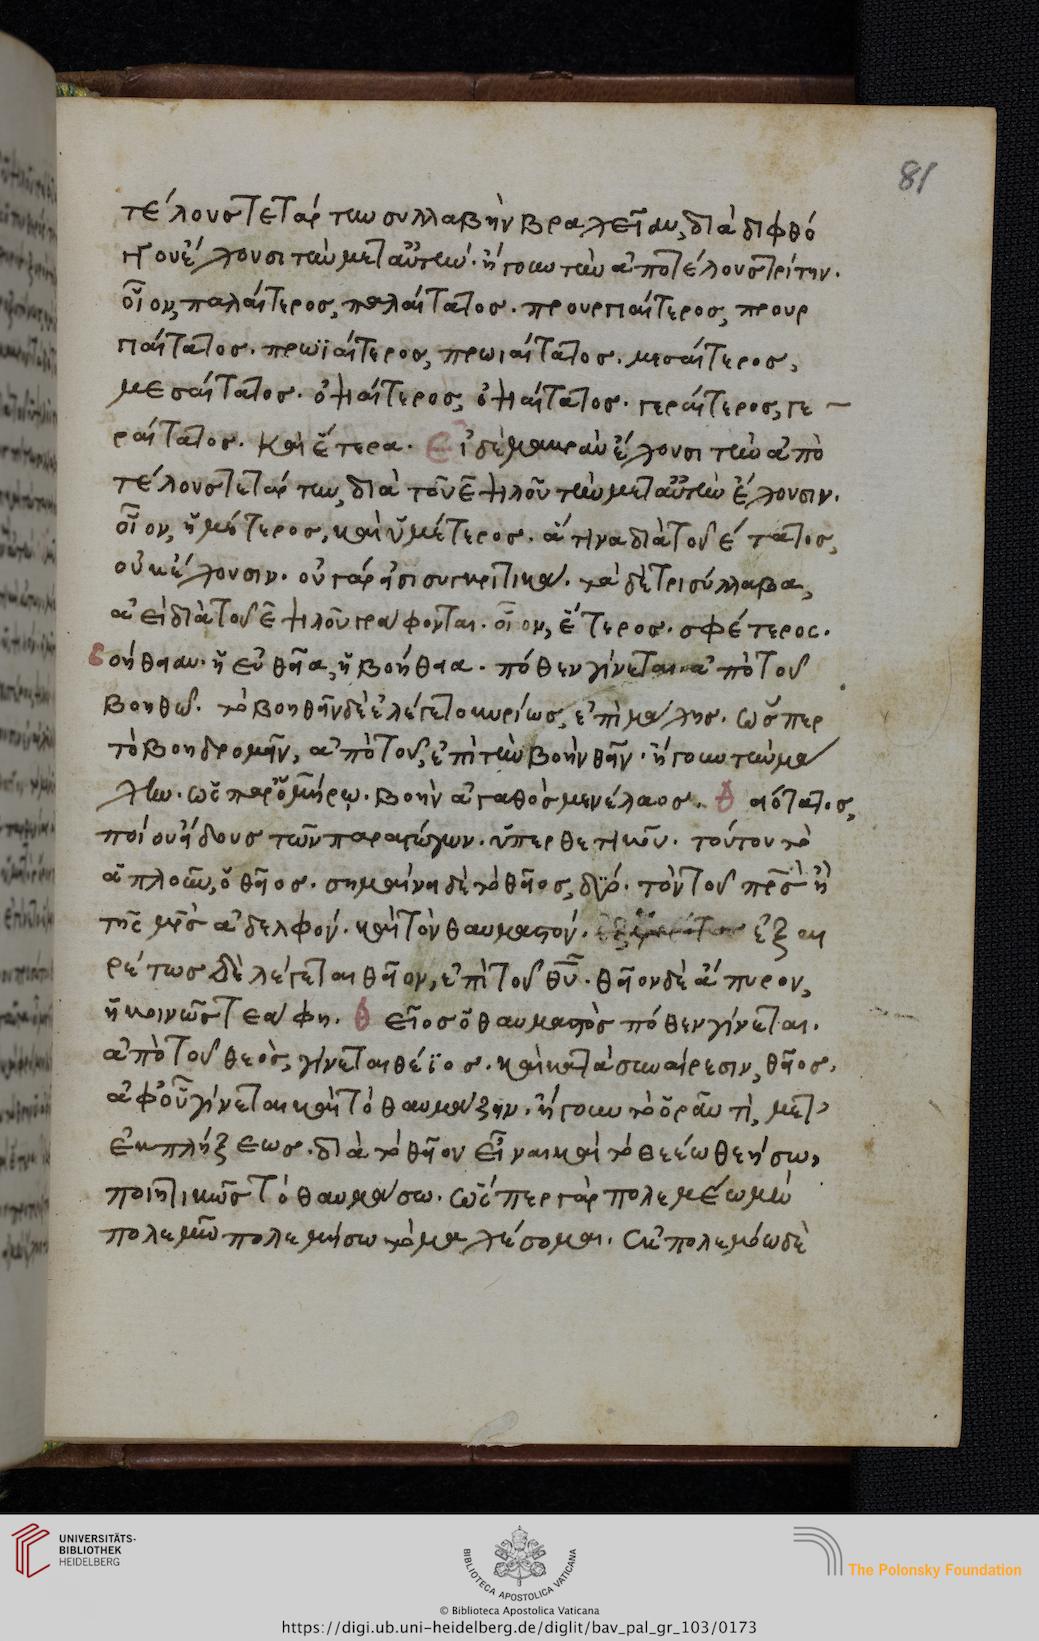 81
τέλους τετάρτην συλλαβὴν βραχεῖαν, διὰ διφθό
γγου ἔχουσι τὴν μετ αὐτὴν. ἤγουν τὴν ἀπο τέλους τρίτην.
οἷον, παλαίτερος, παλαίτατος. προυργιαίτερος, προυρ
γιαίτατος. πρωϊαίτερος, πρωιαίτατος. μεσαίτερος,
μεσαίτατος. ὀψιαίτερος, ὀψιαίτατος. γεραίτερος, γε
ραίτατος. καὶ ἕτερα. Εἰ δὲ μακρὰν ἔχουσι τὴν ἀπὸ
τέλους τετάρτην, διὰ τοῦ ε ψιλοῦ τὴν μετ αὐτὴν ἔχουσιν.
οἷον, ἡμέτερος, καὶ ὑμέτερος. ἅτινα διὰ τοῦ έτατος,
οὐκ ἔχουσιν. οὐ γάρ εἰσι συγκριτικά. τὰ δὲ τρισύλλαβα,
ἀεὶ διὰ τοῦ ε ψιλοῦ γράφονται. οἷον, ἕτερος. σφέτερος.
βοήθειαν. ἢ εὐθεῖα, ἡ βοήθεια. πόθεν γίνεται. ἀπὸ τοῦ
βοηθῶ. τὸ βοηθεῖν δὲ ἐλέγετο κυρίως, ἐπὶ μάχης. ὥσπερ
τὸ βοηδρομεῖν, ἀπὸ τοῦ, ἐπὶ τὴν βοὴν θεῖν. ἤγουν τὴν μά
χην. ὡς παρ ὁμήρῳ. βοὴν ἀγαθὸς μενέλαος. θ ειότατος,
ποίου εἴδους τῶν παραγώγων. ὑπερθετικῶν. τούτου τὸ
ἁπλοῦν, ὁ θεῖος. σημαίνει δὲ τὸ θεῖος, δύο. τὸν τοῦ πρς ἢ
τῆς μρς ἀδελφόν. καὶ τὸν θαυμαστόν. ἐξαι
ρέτως δὲ λέγεται θεῖον, ἐπὶ τοῦ θυ. θεῖον δὲ ἄπυρον,
ἡ κοινῶς τεάφη. θ εῖος ὁ θαυμαστὸς πόθεν γίνεται.
ἀπὸ τοῦ θεὸς, γίνεται θέϊος. καὶ κατὰ συναίρεσιν, θεῖος.
ἀφ οὗ γίνεται καὶ τὸ θαυμάζειν. ἤγουν τὸ ὁρᾶν τὶ, μετ
ἐκπλήξεως. διὰ τὸ θεῖον εἶναι καὶ τὸ θεέω θεήσω,
ποιητικῶς τὸ θαυμάσω. ὥσπερ γὰρ πολεμέω μῶ
πολεμῶ πολεμήσω τὸ μαχέσομαι. ἐκ πολεμόω δὲ
UNIVERSITÄTS-
BIBLIOTHEK
HEIDELBERG
BIBLIOTECA APOSTOLICA VATICANA
The Polonsky Foundation
© Biblioteca Apostolica Vaticana
https://digi.ub.uni-heidelberg.de/diglit/bav_pal_gr_103/0173